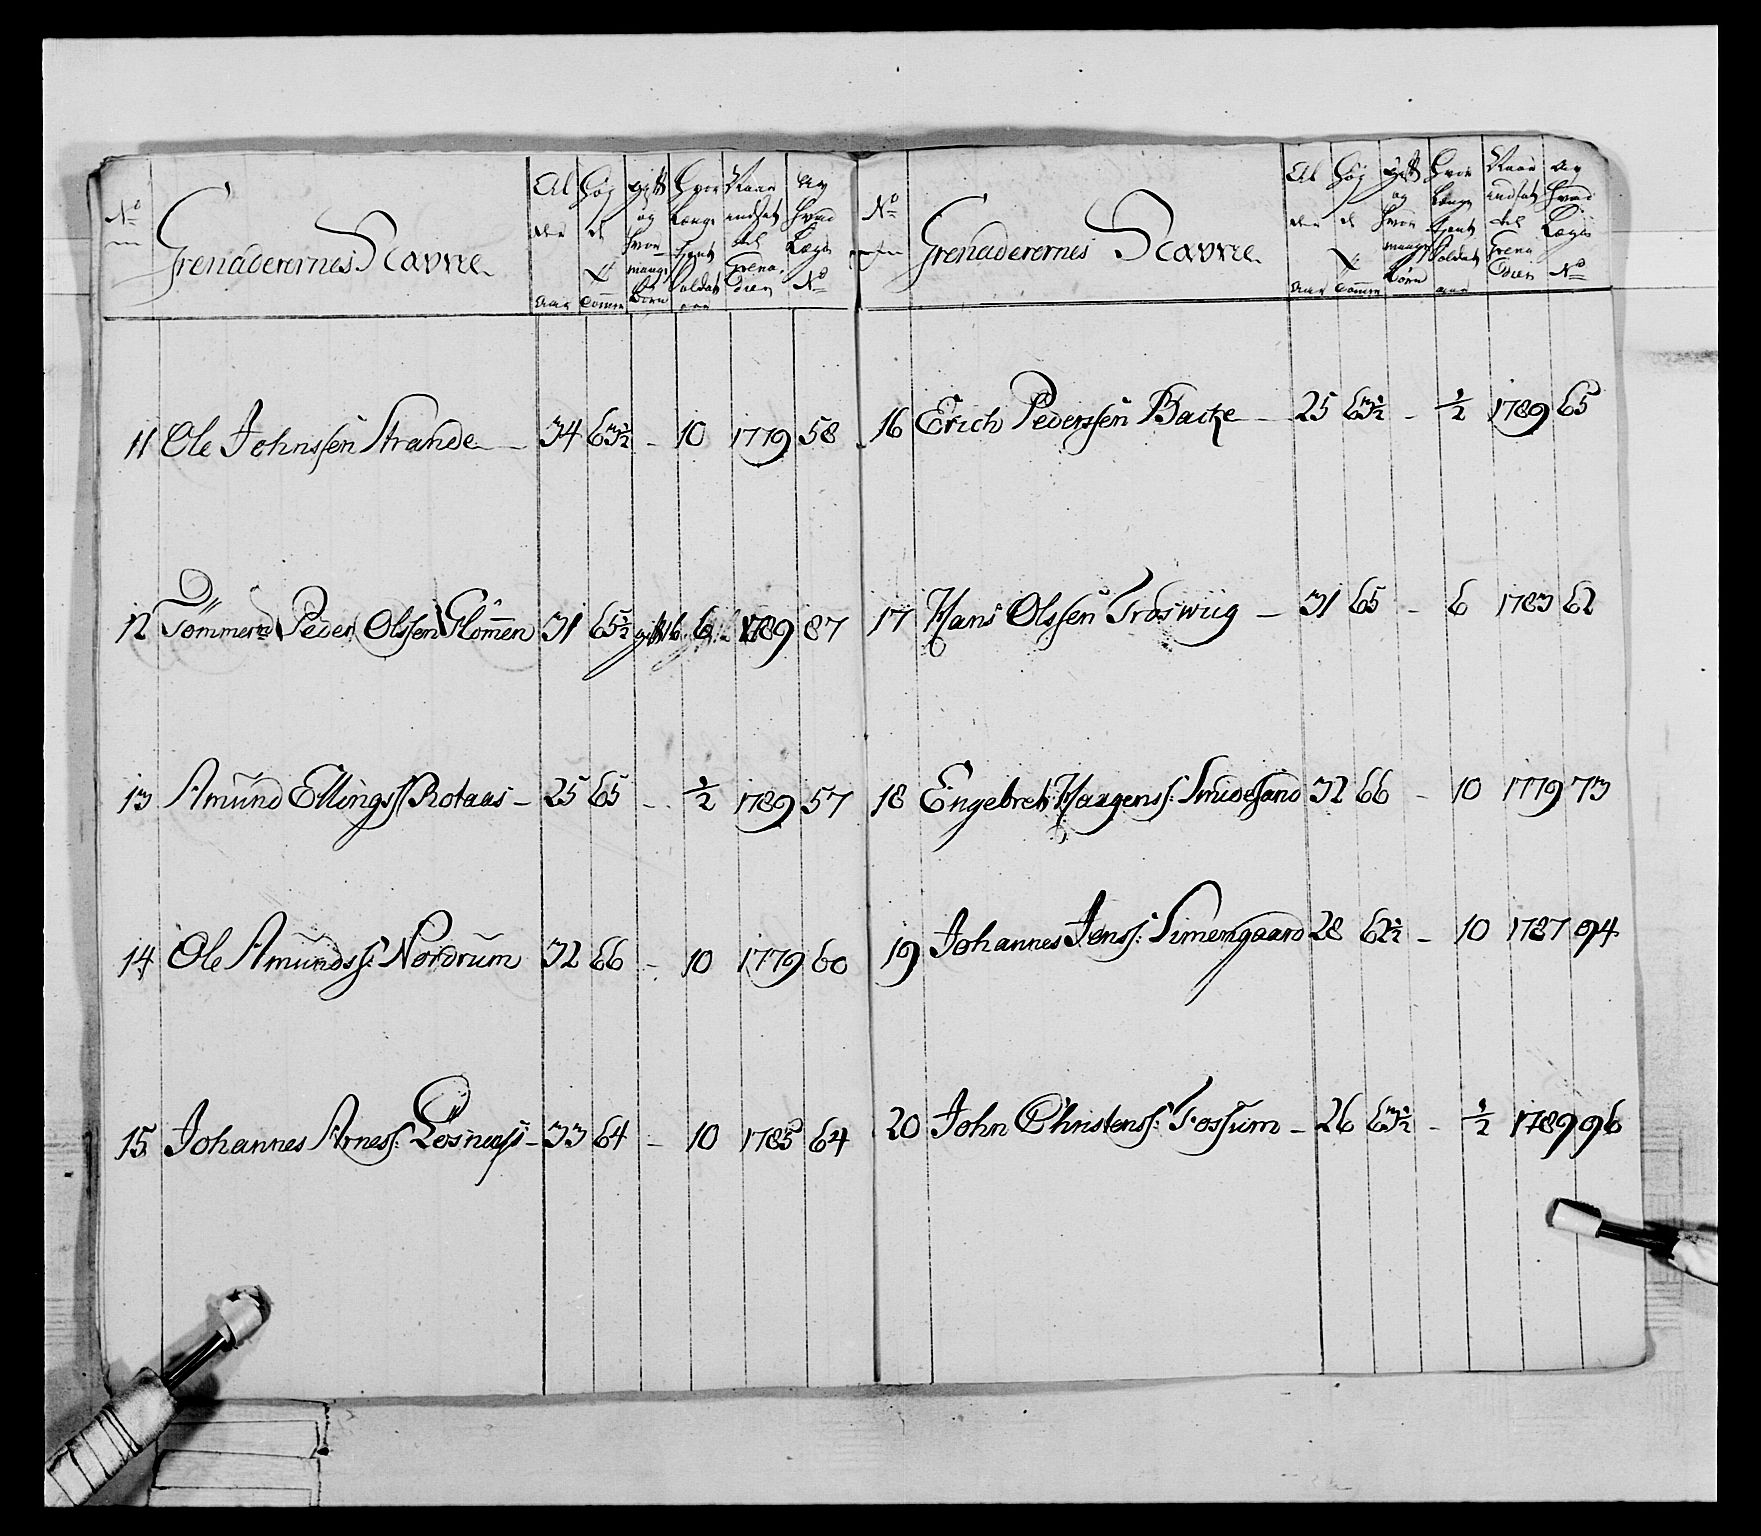 No Grenaderernes Navne Al der Aar Høy de Tommer gift og hvor mange Børn Hvor Længe tjent Soldat aar Naar indsat ved Grena derer Av hvad Lægd No
11 Ole Johnssen Strande 34 63½ - 10 1779 58
12 Tømmermd Peder Olssen Glommen 31 65½ gift 6 1789 87
13 Amund Ellingss Rotaas - 25 65 - ½ 1789 57
14 Ole Amundss: Nordrum 32 66 - 10 1779 60
15 Johannes Arness: - 33 64 - 10 1785 64
No Grenaderernes Navne Al der Aar Høy de Tommer gift og hvor mange Børn Hvor Længe tjent Soldat aar Naar indsat ved Grena derer Av Hvad Lægd No
16 Erich Pederssen Backe - 25 63½ - ½ 1789 65
17 Hans Olssen Troswiig - 31 65 - 6 1783 62
18 Engebret Haagenss: Smidesand 32 66 - 10 1779 73
19 Johannes Jenss: Simengaard 28 62½ - 10 1787 94
20 John Christenss: Fossum - 26 63½ - ½ 1789 96